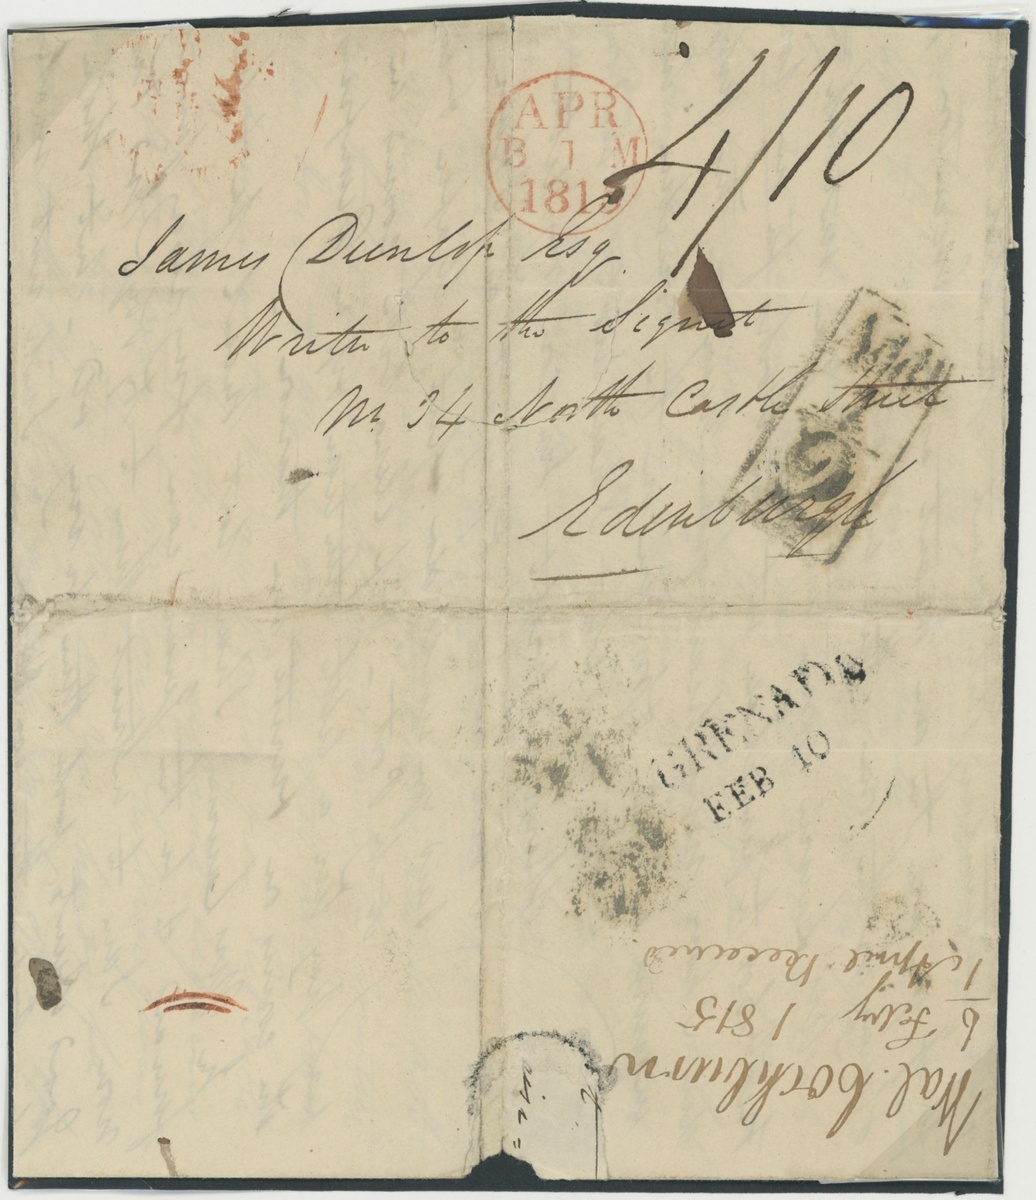 APR
B 1 M
1815
4/10
James Dunlop Esq.
Writer to the Signet
No. 34 North Castle Street
Edinburgh
Addl
½
GRENADA
FEB 10
Wal. Cockburn
6 Feby 1815
1 April Received